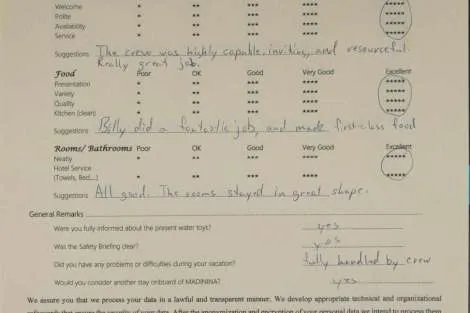 Welcome * ** *** **** *****
Polite * ** *** **** *****
Availability * ** *** **** *****
Service * ** *** **** *****
Suggestions The crew was highly capable, inviting, and resourceful.
Really great job.
Food Poor OK Good Very Good Excellent
Presentation * ** *** **** *****
Variety * ** *** **** *****
Quality * ** *** **** *****
Kitchen (clean) * ** *** **** *****
Suggestions Billy did a fantastic job, and made first-class food
Rooms/ Bathrooms Poor OK Good Very Good Excellent
Neatly * ** *** **** *****
Hotel Service
(Towels, Bed,...) * ** *** **** *****
Suggestions All good. The rooms stayed in great shape.
General Remarks
Were you fully informed about the present water toys? yes
Was the Safety Briefing clear? yes
Did you have any problems or difficulties during your vacation? fully handled by crew
Would you consider another stay onboard of MADININA? yes
We assure you that we process your data in a lawful and transparent manner. We develop appropriate technical and organizational
safeguards that ensure the security of your data. After the anonymization and encryption of your personal data we intend to process them